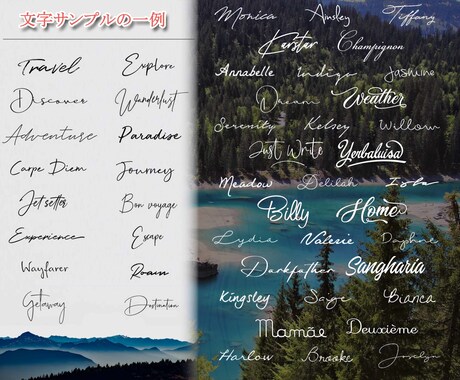 文字サンプルの一例
Travel Explore
Discover Wanderlust
Adventure Paradise
Carpe Diem Journey
Jetsetter Bon voyage
Experience Escape
Wayfarer Roam
Getaway Destination
Monica Ansley Tiffany
Kerstar Champignon
Annabelle Indigo Jasmine
Dream Weather
Serenity Kelsey Willow
Just Write Yerbaluisa
Meadow Delilah Isla
Billy Home
Lydia Valerie Daphne
Darkfather Sangharia
Kingsley Sage Bianca
Mamãe Deuxième
Harlow Brooke Joselyn